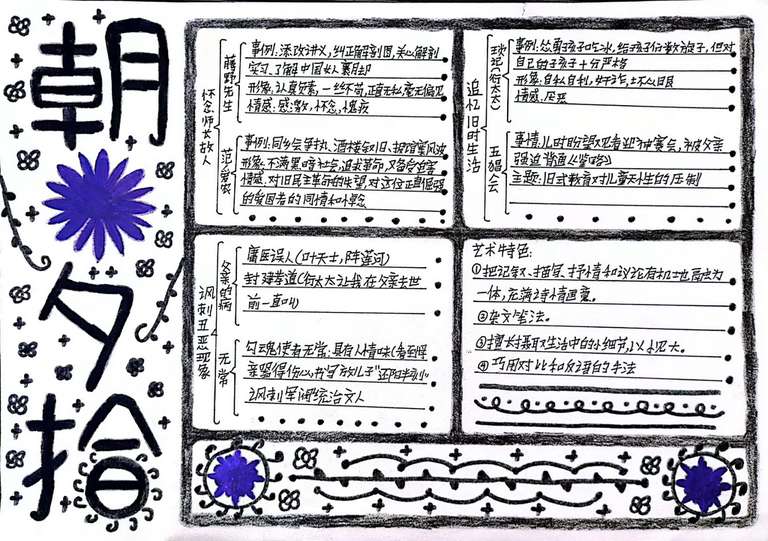 朝
夕
拾
怀念师长故人
藤野先生
事例:添改讲义,纠正解剖图,关心解剖
实习、了解中国女人裹脚
形象:认真负责,一丝不苟,正直无私毫无偏见
情感:感激,怀念,愧疚
范爱农
事例:同乡会争执、酒楼叙旧、报馆案风波
形象:不满黑暗社会,追求革命,又备受迫害
情感:对旧民主革命的失望,对这位正直倔强
的爱国者的同情和悼念
追忆旧时生活
琐记(衍太太)
事例:怂恿孩子吃冰,给孩子们数旋子,但对
自己的子孩子十分严格
形象:自私自利,奸诈,坏心眼
情感:厌恶
五猖会
事情:儿时盼望观看迎神赛会,被父亲
强迫背诵《鉴略》
主题:旧式教育对儿童天性的压制
讽刺丑恶现象
父亲的病
庸医误人(叶天士,陈莲河)
封建孝道(衍太太让我在父亲去世
前一直叫)
无常
勾魂使者无常:具有人情味(看到怪
亲哭得伤心书写"放儿子"还阳半刻)
讽刺军阀统治文人
艺术特色:
①把记叙、描写、抒情和议论有机地融为
一体,充满诗情画意。
②杂文笔法。
③擅长摄取生活中的小细节,以小见大。
④巧用对比和反语的手法